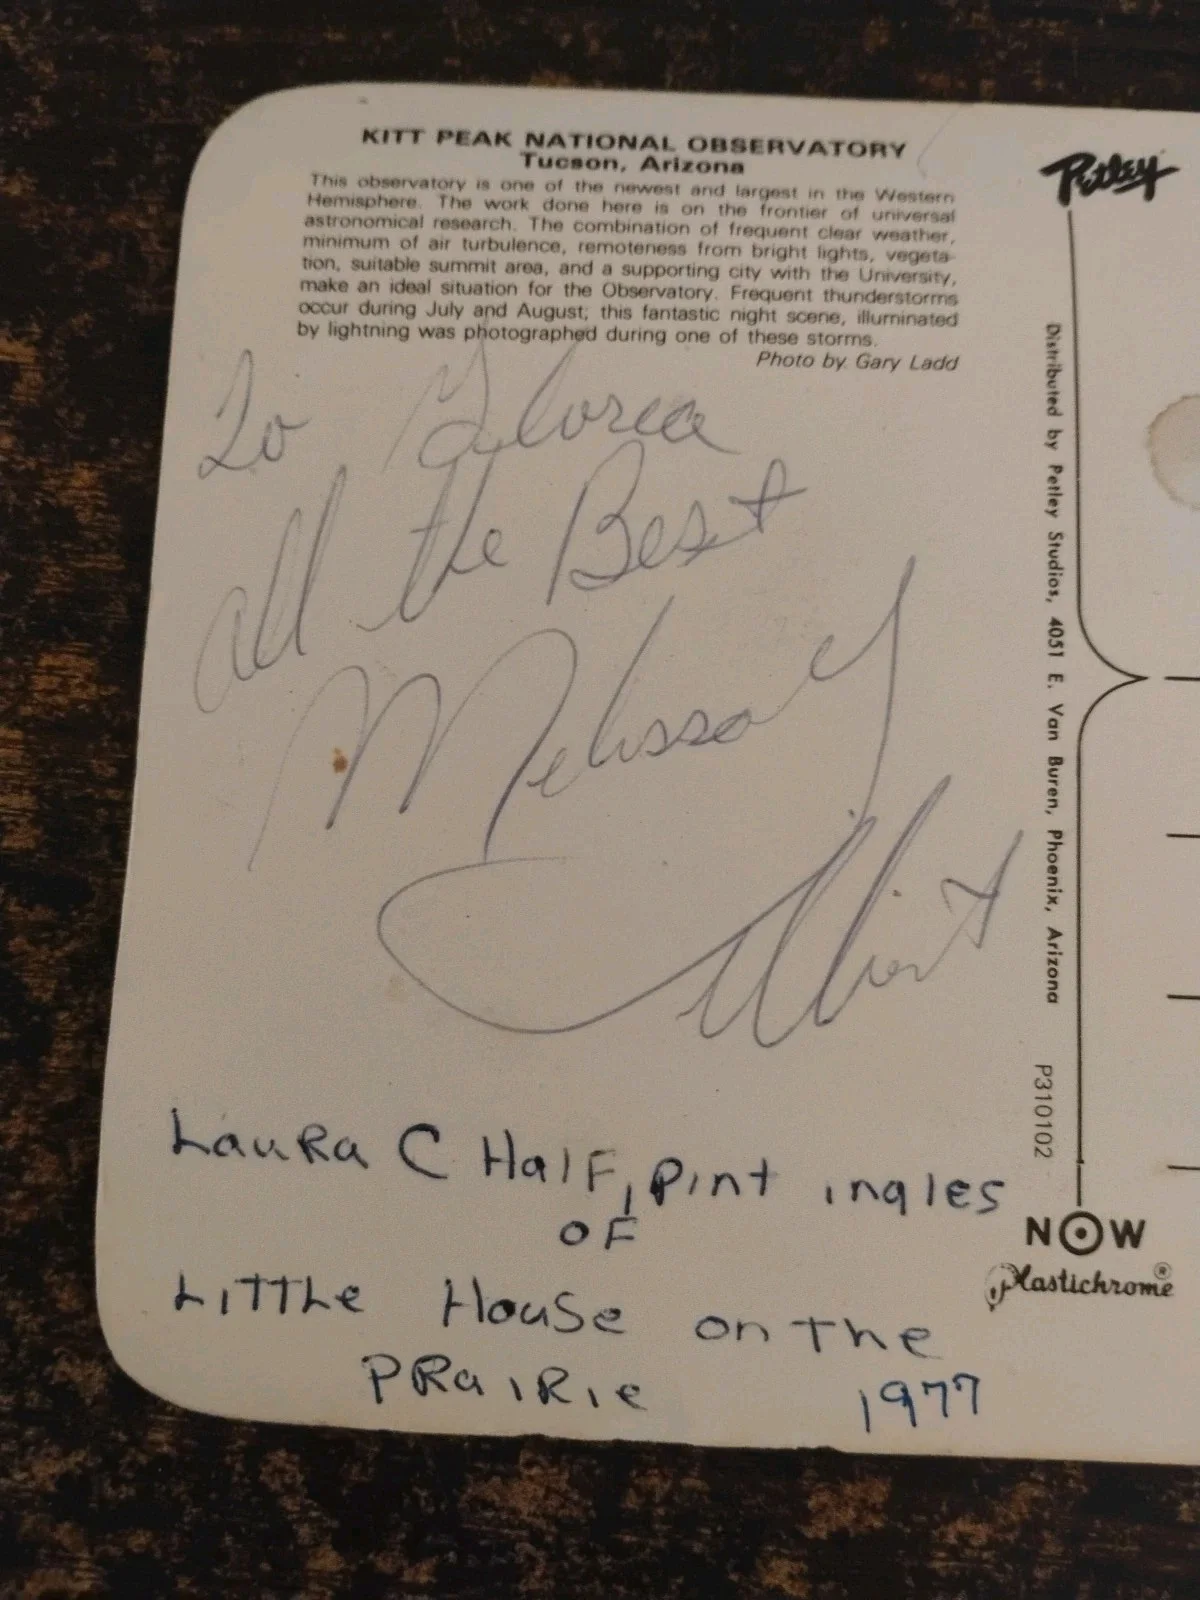 KITT PEAK NATIONAL OBSERVATORY
Tucson, Arizona
This observatory is one of the newest and largest in the Western
Hemisphere. The work done here is on the frontier of universal
astronomical research. The combination of frequent clear weather,
minimum of air turbulence, remoteness from bright lights, vegeta-
tion, suitable summit area, and a supporting city with the University,
make an ideal situation for the Observatory. Frequent thunderstorms
occur during July and August; this fantastic night scene, illuminated
by lightning was photographed during one of these storms.
Photo by Gary Ladd
To Gloria
all the Best
Melissa
Gilbert
Laura C Half, pint ingles
OF
Little House on the
Prairie 1977
Petley
Distributed by Petley Studios, 4051 E. Van Buren, Phoenix, Arizona
P310102
NOW
Plastichrome®